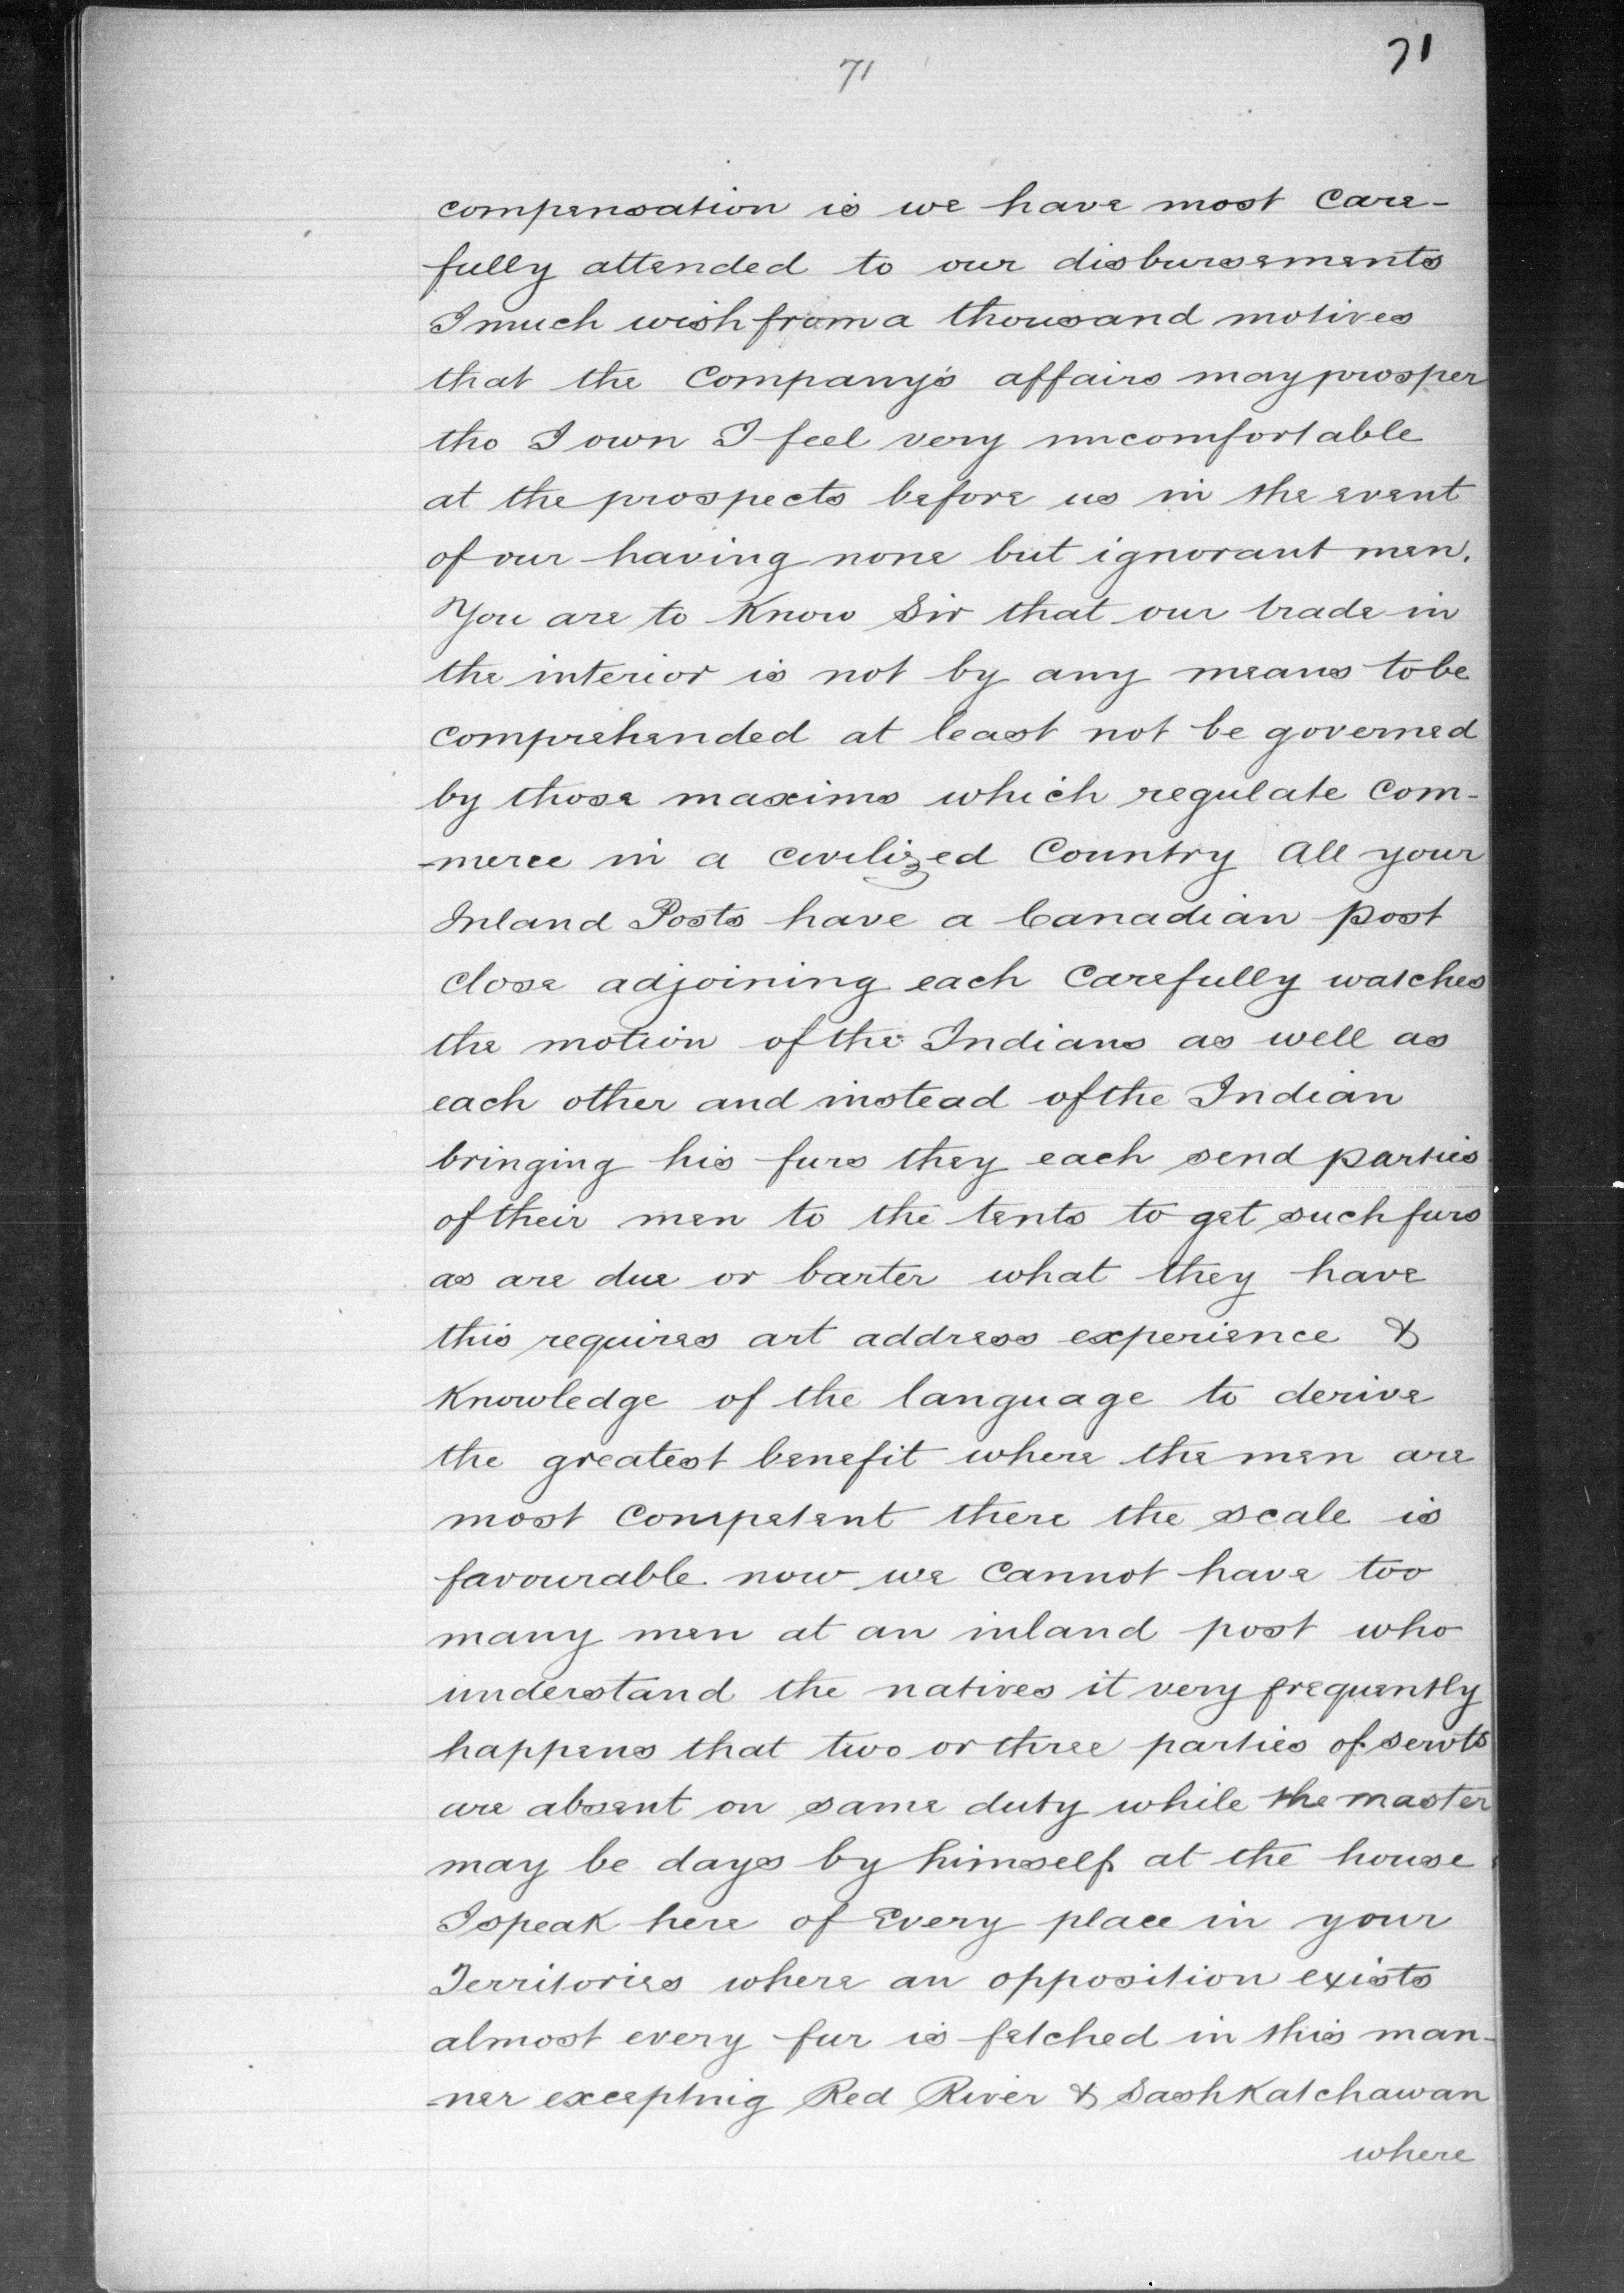 71
71
compensation is we have most care-
fully attended to our disbursements
I much wish from a thousand motives
that the Company's affairs may prosper
tho I own I feel very uncomfortable
at the prospects before us in the event
of our having none but ignorant men.
You are to Know Sir that our trade in
the interior is not by any means to be
comprehended at least not be governed
by those maxims which regulate Com-
-merce in a civilized Country All your
Inland Posts have a Canadian post
close adjoining each Carefully watches
the motion of the Indians as well as
each other and instead of the Indian
bringing his furs they each send parties
of their men to the tents to get such furs
as are due or barter what they have
this requires art address experience &
Knowledge of the language to derive
the greatest benefit where the men are
most Competent there the scale is
favourable now we Cannot have too
many men at an inland post who
understand the natives it very frequently
happens that two or three parties of servts
are absent on same duty while the master
may be days by himself at the house
I speak here of Every place in your
Territories where an opposition exists
almost every fur is fetched in this man-
-ner excepting Red River & SashKatchawan
where